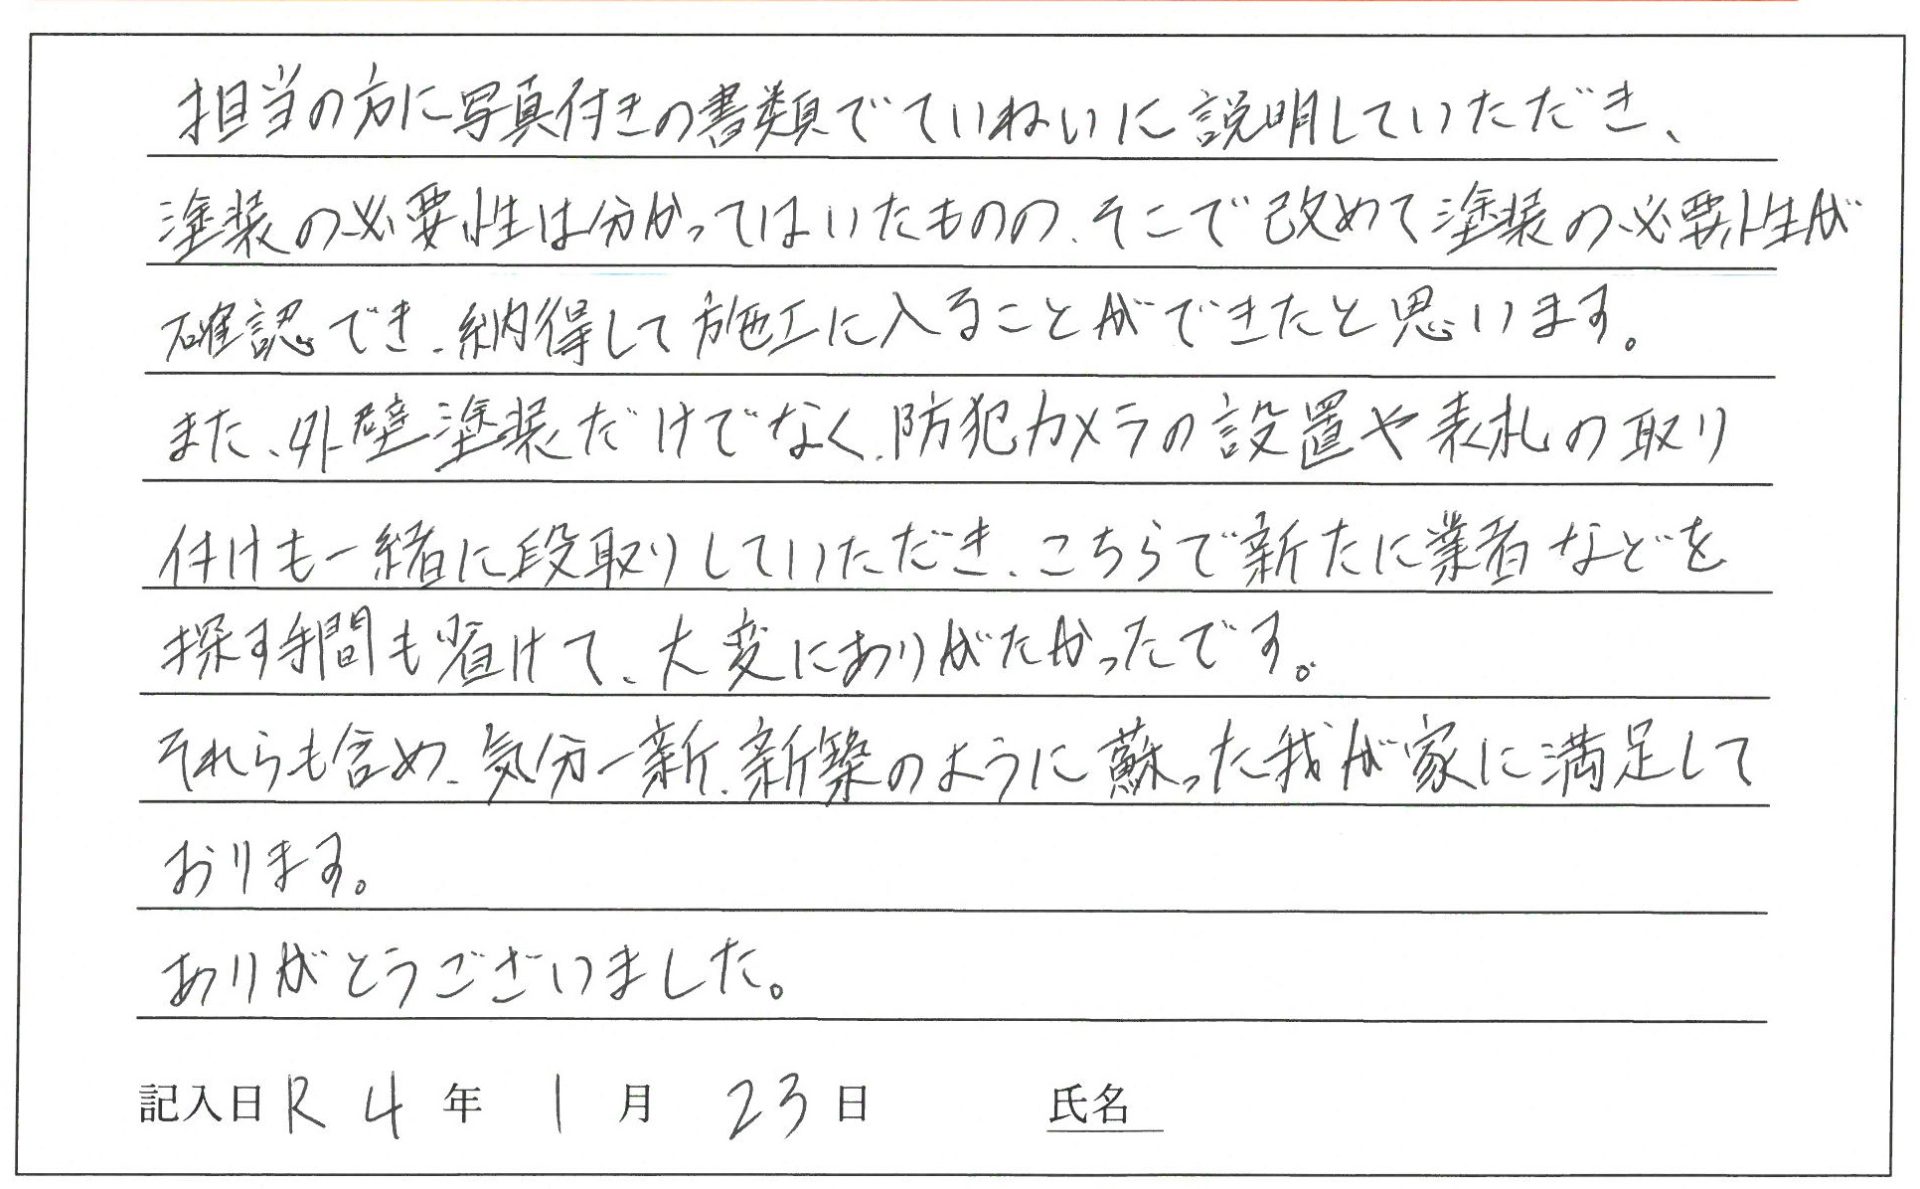 担当の方に写真付きの書類でていねいに説明していただき、
塗装の必要性は分かってはいたものの、そこで改めて塗装の必要性が
確認でき、納得して施工に入ることができたと思います。
また、外壁塗装だけでなく、防犯カメラの設置や表札の取り
付けも一緒に段取りしていただき、こちらで新たに業者などを
探す手間も省けて、大変にありがたかったです。
それらも含め、気分一新、新築のように蘇った我が家に満足して
おります。
ありがとうございました。
記入日 R 4 年 1 月 23 日 氏名